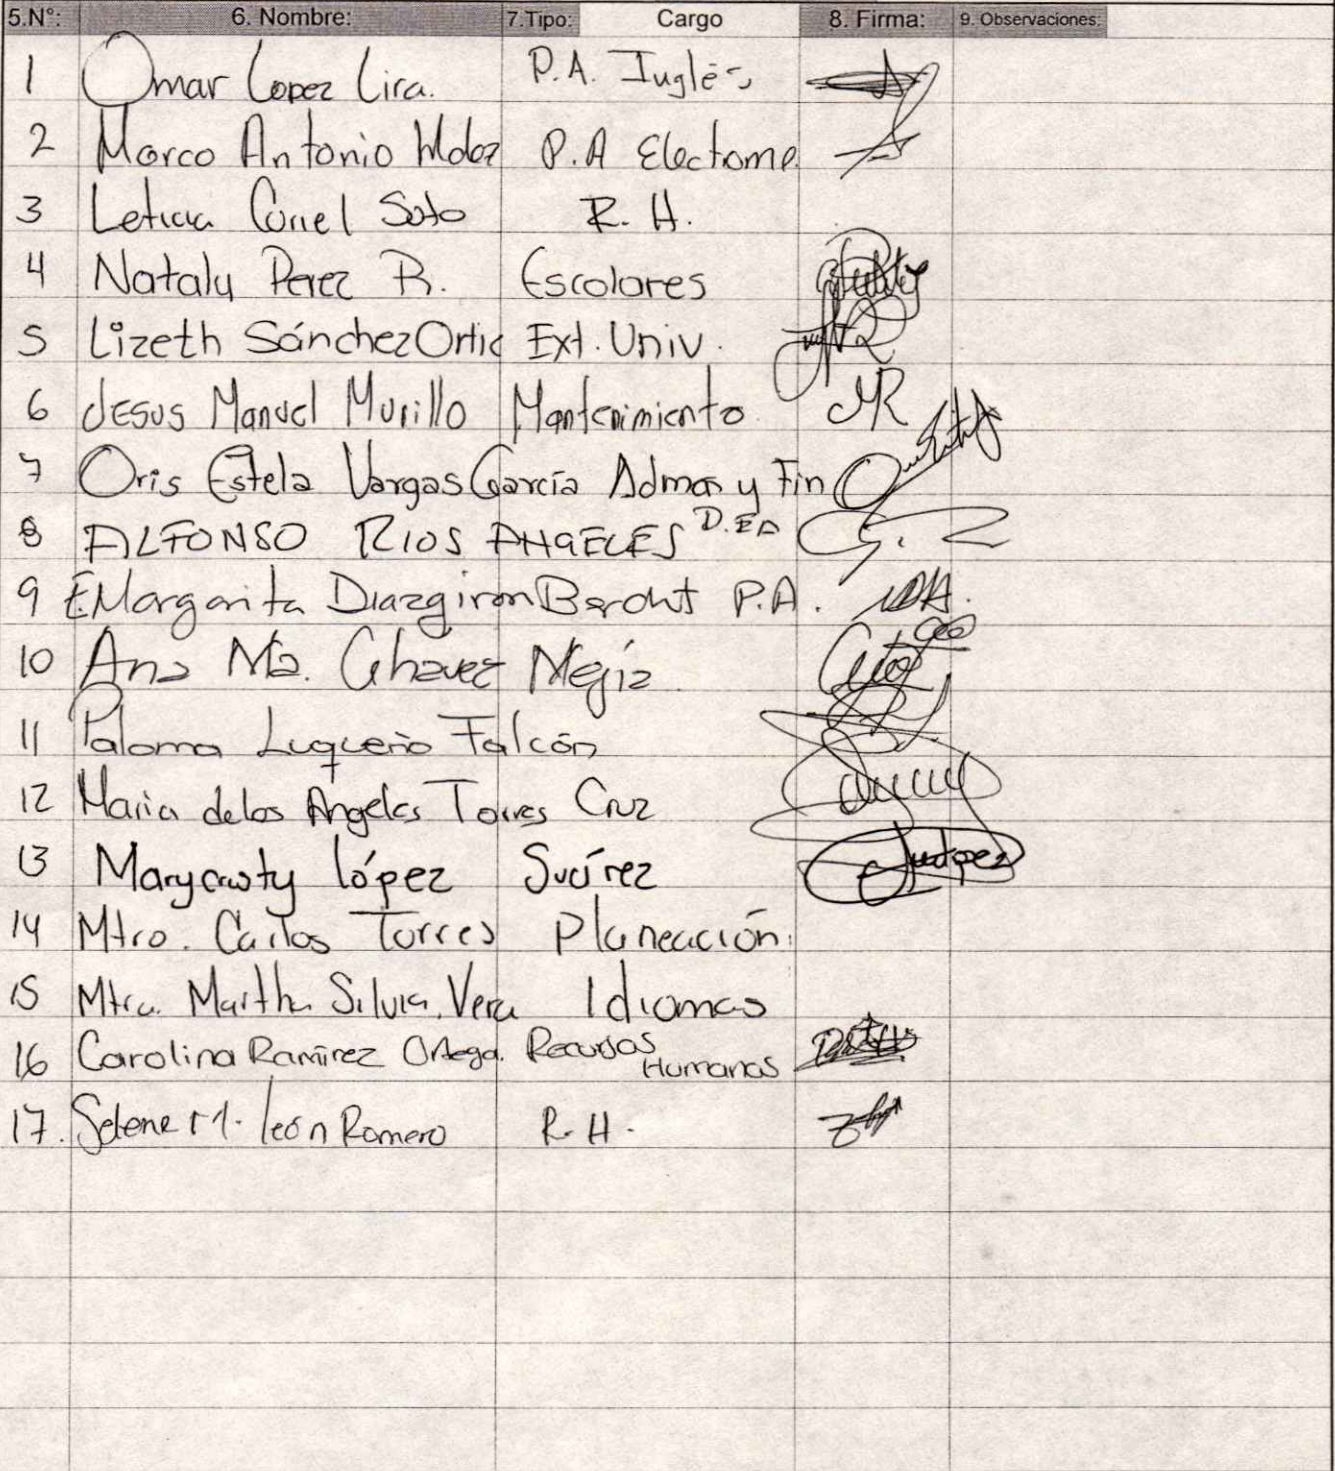 5.N°: 6. Nombre: 7.Tipo: Cargo 8. Firma: 9. Observaciones:
1 Omar Lopez Lira. P.A. Inglés
2 Marco Antonio P.A Electome
3 Leticia Coriel Soto R. H.
4 Nataly Perez R. Escolares
5 Lizeth Sánchez Ortic Ext. Univ.
6 Jesus Manuel Murillo Mantenimiento
7 Oris Estela Vargas García Admon y Fin
8 ALFONSO RIOS ANGELES D.EA
9 E Margarita Diazgiron P.A.
10 Ana Ma. Chavez Mejía
11 Paloma Luqueño Falcón
12 Maria de los Angeles Torres Cruz
13 Marycruty López Suárez
14 Mtro. Carlos Torres Planeación
15 Mtra. Martha Silvia Vera Idiomas
16 Carolina Ramírez Ortega. Recursos Humanos
17. Selene M. León Romero R. H.